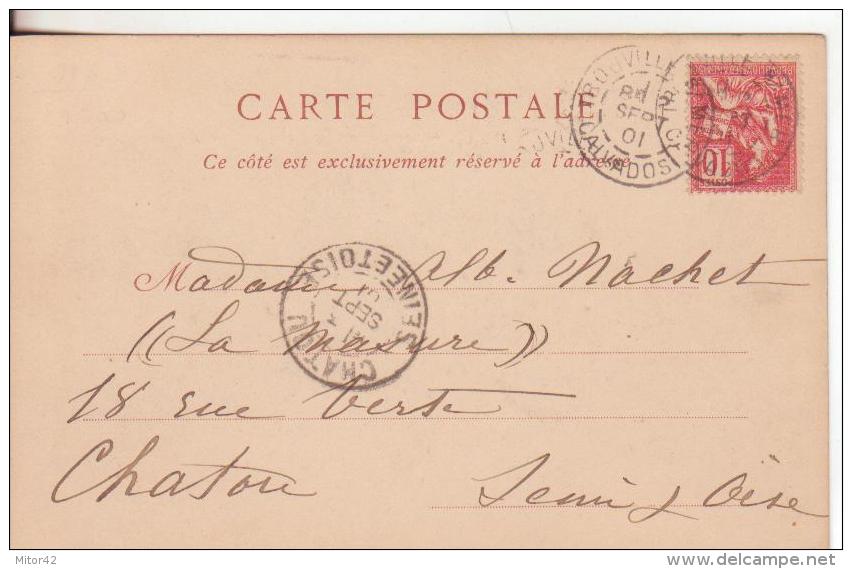 CARTE POSTALE
Ce côté est exclusivement réservé à l'adresse
TROUVILLE
SEPT
01
CALVADOS
10
CHATOU
SEINE ET OISE
3
SEPT
01
Madame Alb. Nachet
((La Masure))
18 rue Verte
Chatou
Seine & Oise
Mitor42
www.delcampe.net